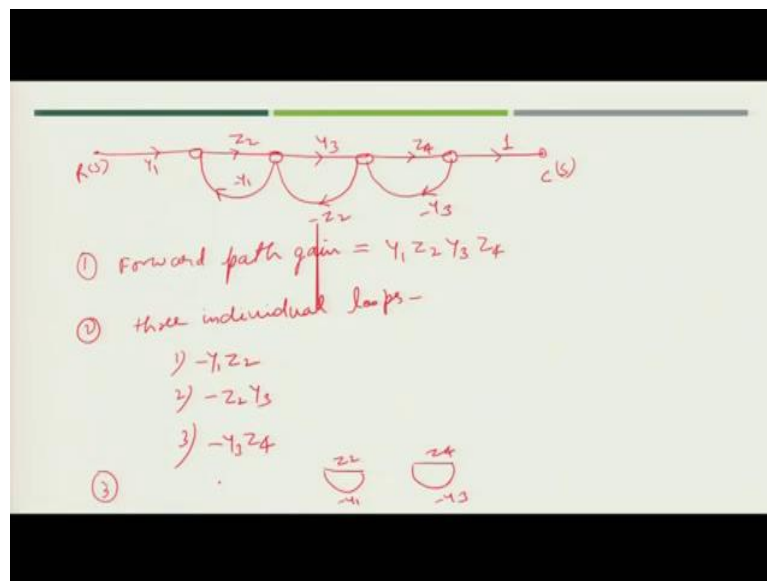 Z2 Y3 Z4 1
R(s) Y1 -Y1 C(s)
-Z2 -Y3
① Forward path gain = Y1 Z2 Y3 Z4
② three individual loops -
1) -Y1Z2
2) -Z2Y3
3) -Y3Z4
③ Z2 Z4
-Y1 -Y3